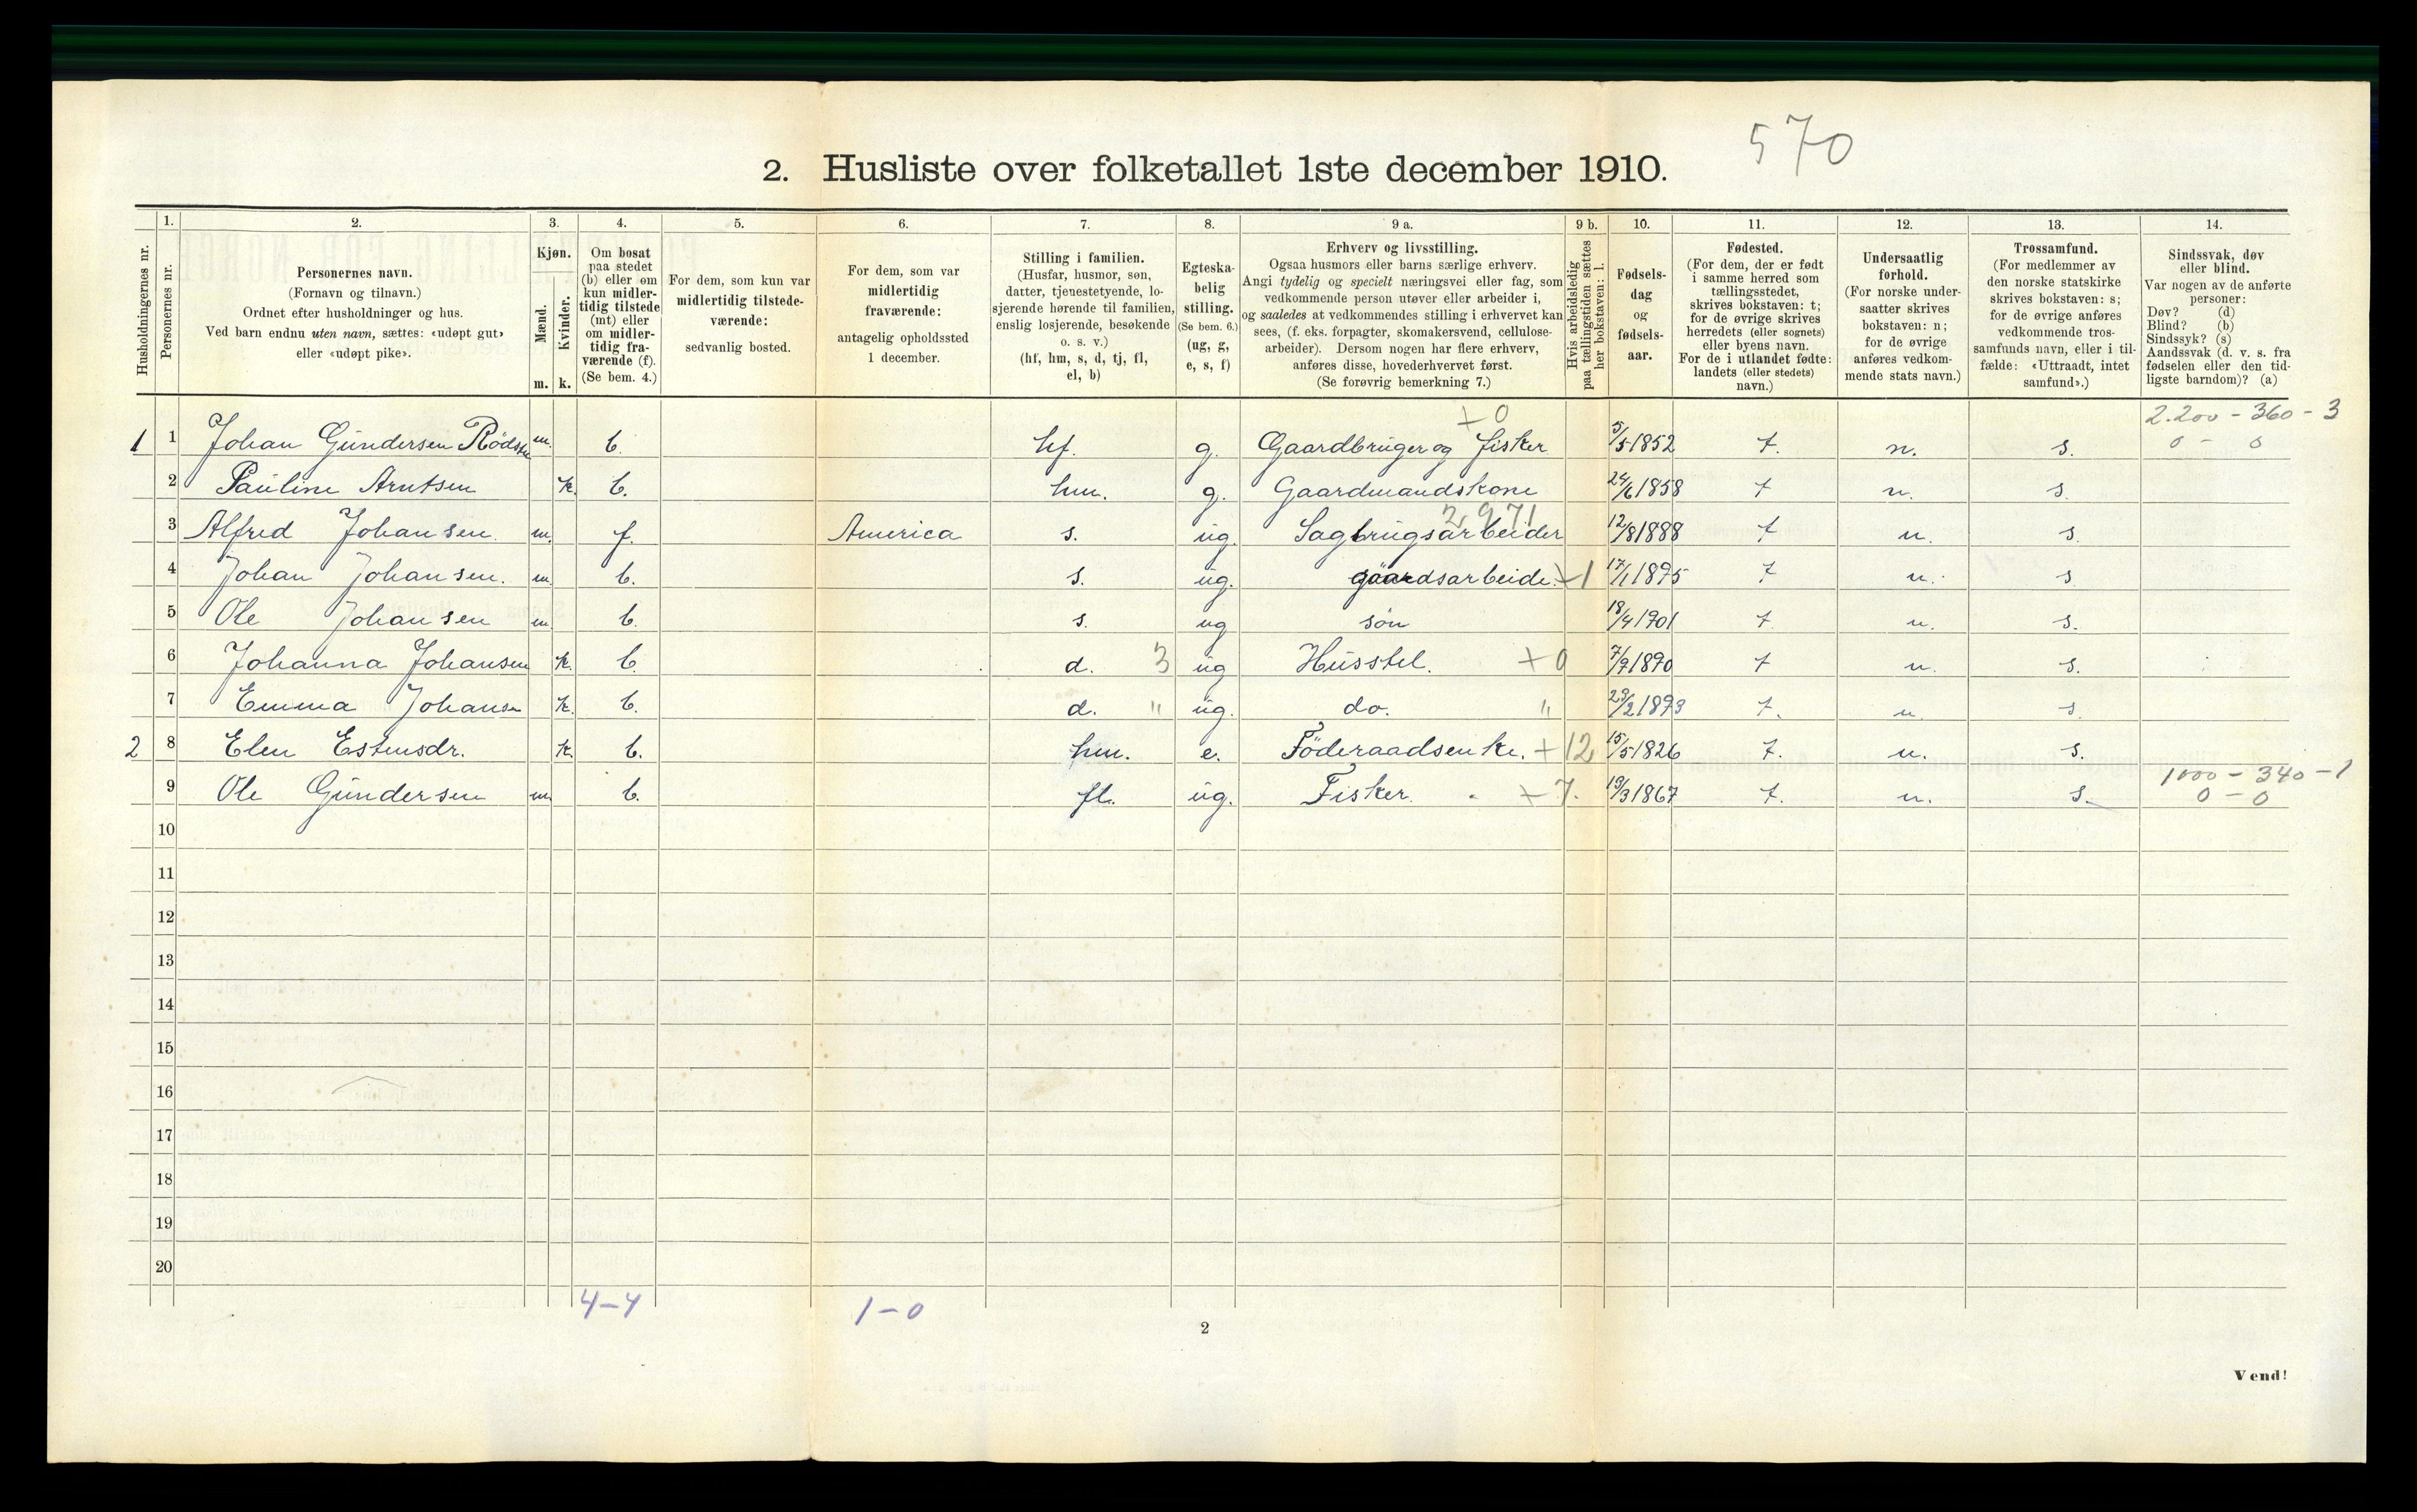 570
2. Husliste over folketallet 1ste december 1910.
Husholdningernes nr.
1.
Personernes nr.
2.
Personernes navn.
(Fornavn og tilnavn.)
Ordnet efter husholdninger og hus.
Ved barn endnu uten navn, sættes: «udøpt gut»
eller «udøpt pike».
3.
Kjøn.
Mænd.
Kvinder.
m. k.
4.
Om bosat
paa stedet
(b) eller om
kun midler-
tidig tilstede
(mt) eller
om midler-
tidig fra-
værende (f).
(Se bem. 4.)
5.
For dem, som kun var
midlertidig tilstede-
værende:
sedvanlig bosted.
6.
For dem, som var
midlertidig
fraværende:
antagelig opholdssted
1 december.
7.
Stilling i familien.
(Husfar, husmor, søn,
datter, tjenestetyende, lo-
sjerende hørende til familien,
enslig losjerende, besøkende
o. s. v.)
(hf, hm, s, d, tj, fl,
el, b)
8.
Egteska-
belig
stilling.
(Se bem. 6.)
(ug, g,
e, s, f)
9 a.
Erhverv og livsstilling.
Ogsaa husmors eller barns særlige erhverv.
Angi tydelig og specielt næringsvei eller fag, som
vedkommende person utøver eller arbeider i,
og saaledes at vedkommendes stilling i erhvervet kan
sees, (f. eks. forpagter, skomakersvend, cellulose-
arbeider). Dersom nogen har flere erhverv,
anføres disse, hovederhvervet først.
(Se forøvrig bemerkning 7.)
9 b.
Hvis arbeidsledig
paa tællingstiden sættes
her bokstaven: l.
10.
Fødsels-
dag
og
fødsels-
aar.
11.
Fødested.
(For dem, der er født
i samme herred som
tællingsstedet,
skrives bokstaven: t;
for de øvrige skrives
herredets (eller sognets)
eller byens navn.
For de i utlandet fødte:
landets (eller stedets)
navn.)
12.
Undersaatlig
forhold.
(For norske under-
saatter skrives
bokstaven: n;
for de øvrige
anføres vedkom-
mende stats navn.)
13.
Trossamfund.
(For medlemmer av
den norske statskirke
skrives bokstaven: s;
for de øvrige anføres
vedkommende tros-
samfunds navn, eller i til-
fælde: «Uttraadt, intet
samfund».)
14.
Sindssvak, døv
eller blind.
Var nogen av de anførte
personer:
Døv? (d)
Blind? (b)
Sindssyk? (s)
Aandssvak (d. v. s. fra
fødselen eller den tid-
ligste barndom)? (a)
+0 2.200 - 360 - 3
1 1 Johan Gundersen m. b. hf. g. Gaardbruger og fisker 5/5 1852 t. n. s. 0 - 0
2 Pauline Arntsen k. b. hm. g. Gaardmandskone 24/6 1858 t n. s.
2971
3 Alfred Johansen. m. f. America s. ug. Sagbrugsarbeider 12/8 1888 t n. s.
4 Johan Johansen. m. b. s. ug. gaardsarbeide. +1 17/1 1895 t n. s
5 Ole Johansen m. b. s. ug søn 18/4 1901 t. n. s.
6 Johanna Johansen k. b. d. 3 ug Husstel. +0 7/9 1870 t n. s.
7 Emma Johansen k. b. d. " ug. do. " 1893 t. n s.
2 8 Elen Estensdr. k. b. hm. e. Föderaadsenke. +12 15/5 1826 t. n. s.
1000 - 340 - 1
9 Ole Gundersen m. b. fl. ug. Fisker. +7. 19/3 1867 t. n. s. 0 - 0
10
11
12
13
14
15
16
17
18
19
20
4-4 1-0
2
Vend!